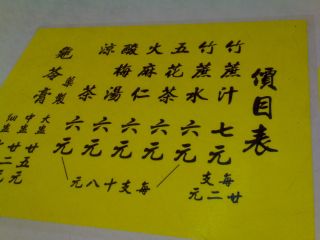 價目表
竹蔗汁 七元
每支廿二元
竹蔗水 六元
五花茶 六元
火麻仁 六元
酸梅湯 六元
涼茶 六元
每支十八元
龜苓膏